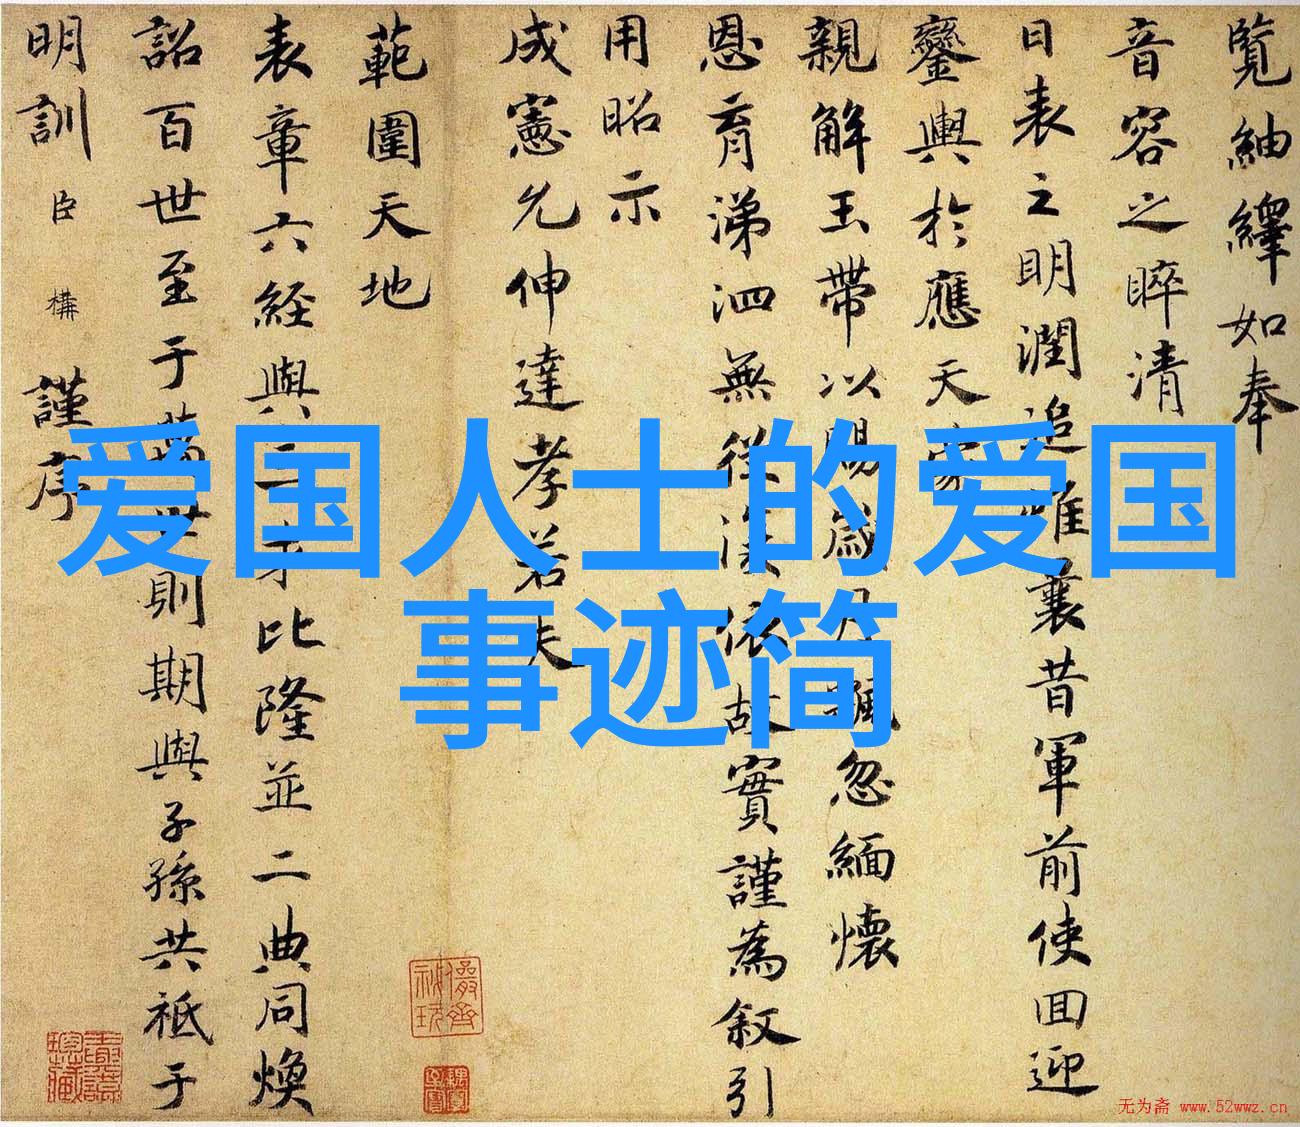 覽紬繹如奉
音容之睟清
日表之明潤追惟曩昔軍前使回迎
鑾輿於應天
親解玉帶以賜
忽緬懷
恩育涕泗無從
依故實謹為叙引
用昭示
成憲允伸達孝若夫
範圍天地
表章六經與
比隆並二典同煥
詔百世至于萬世則期與子孫共祗于
明訓臣構謹序
爱国人士的爱国
事迹简
无为斋 www.52wwz.cn